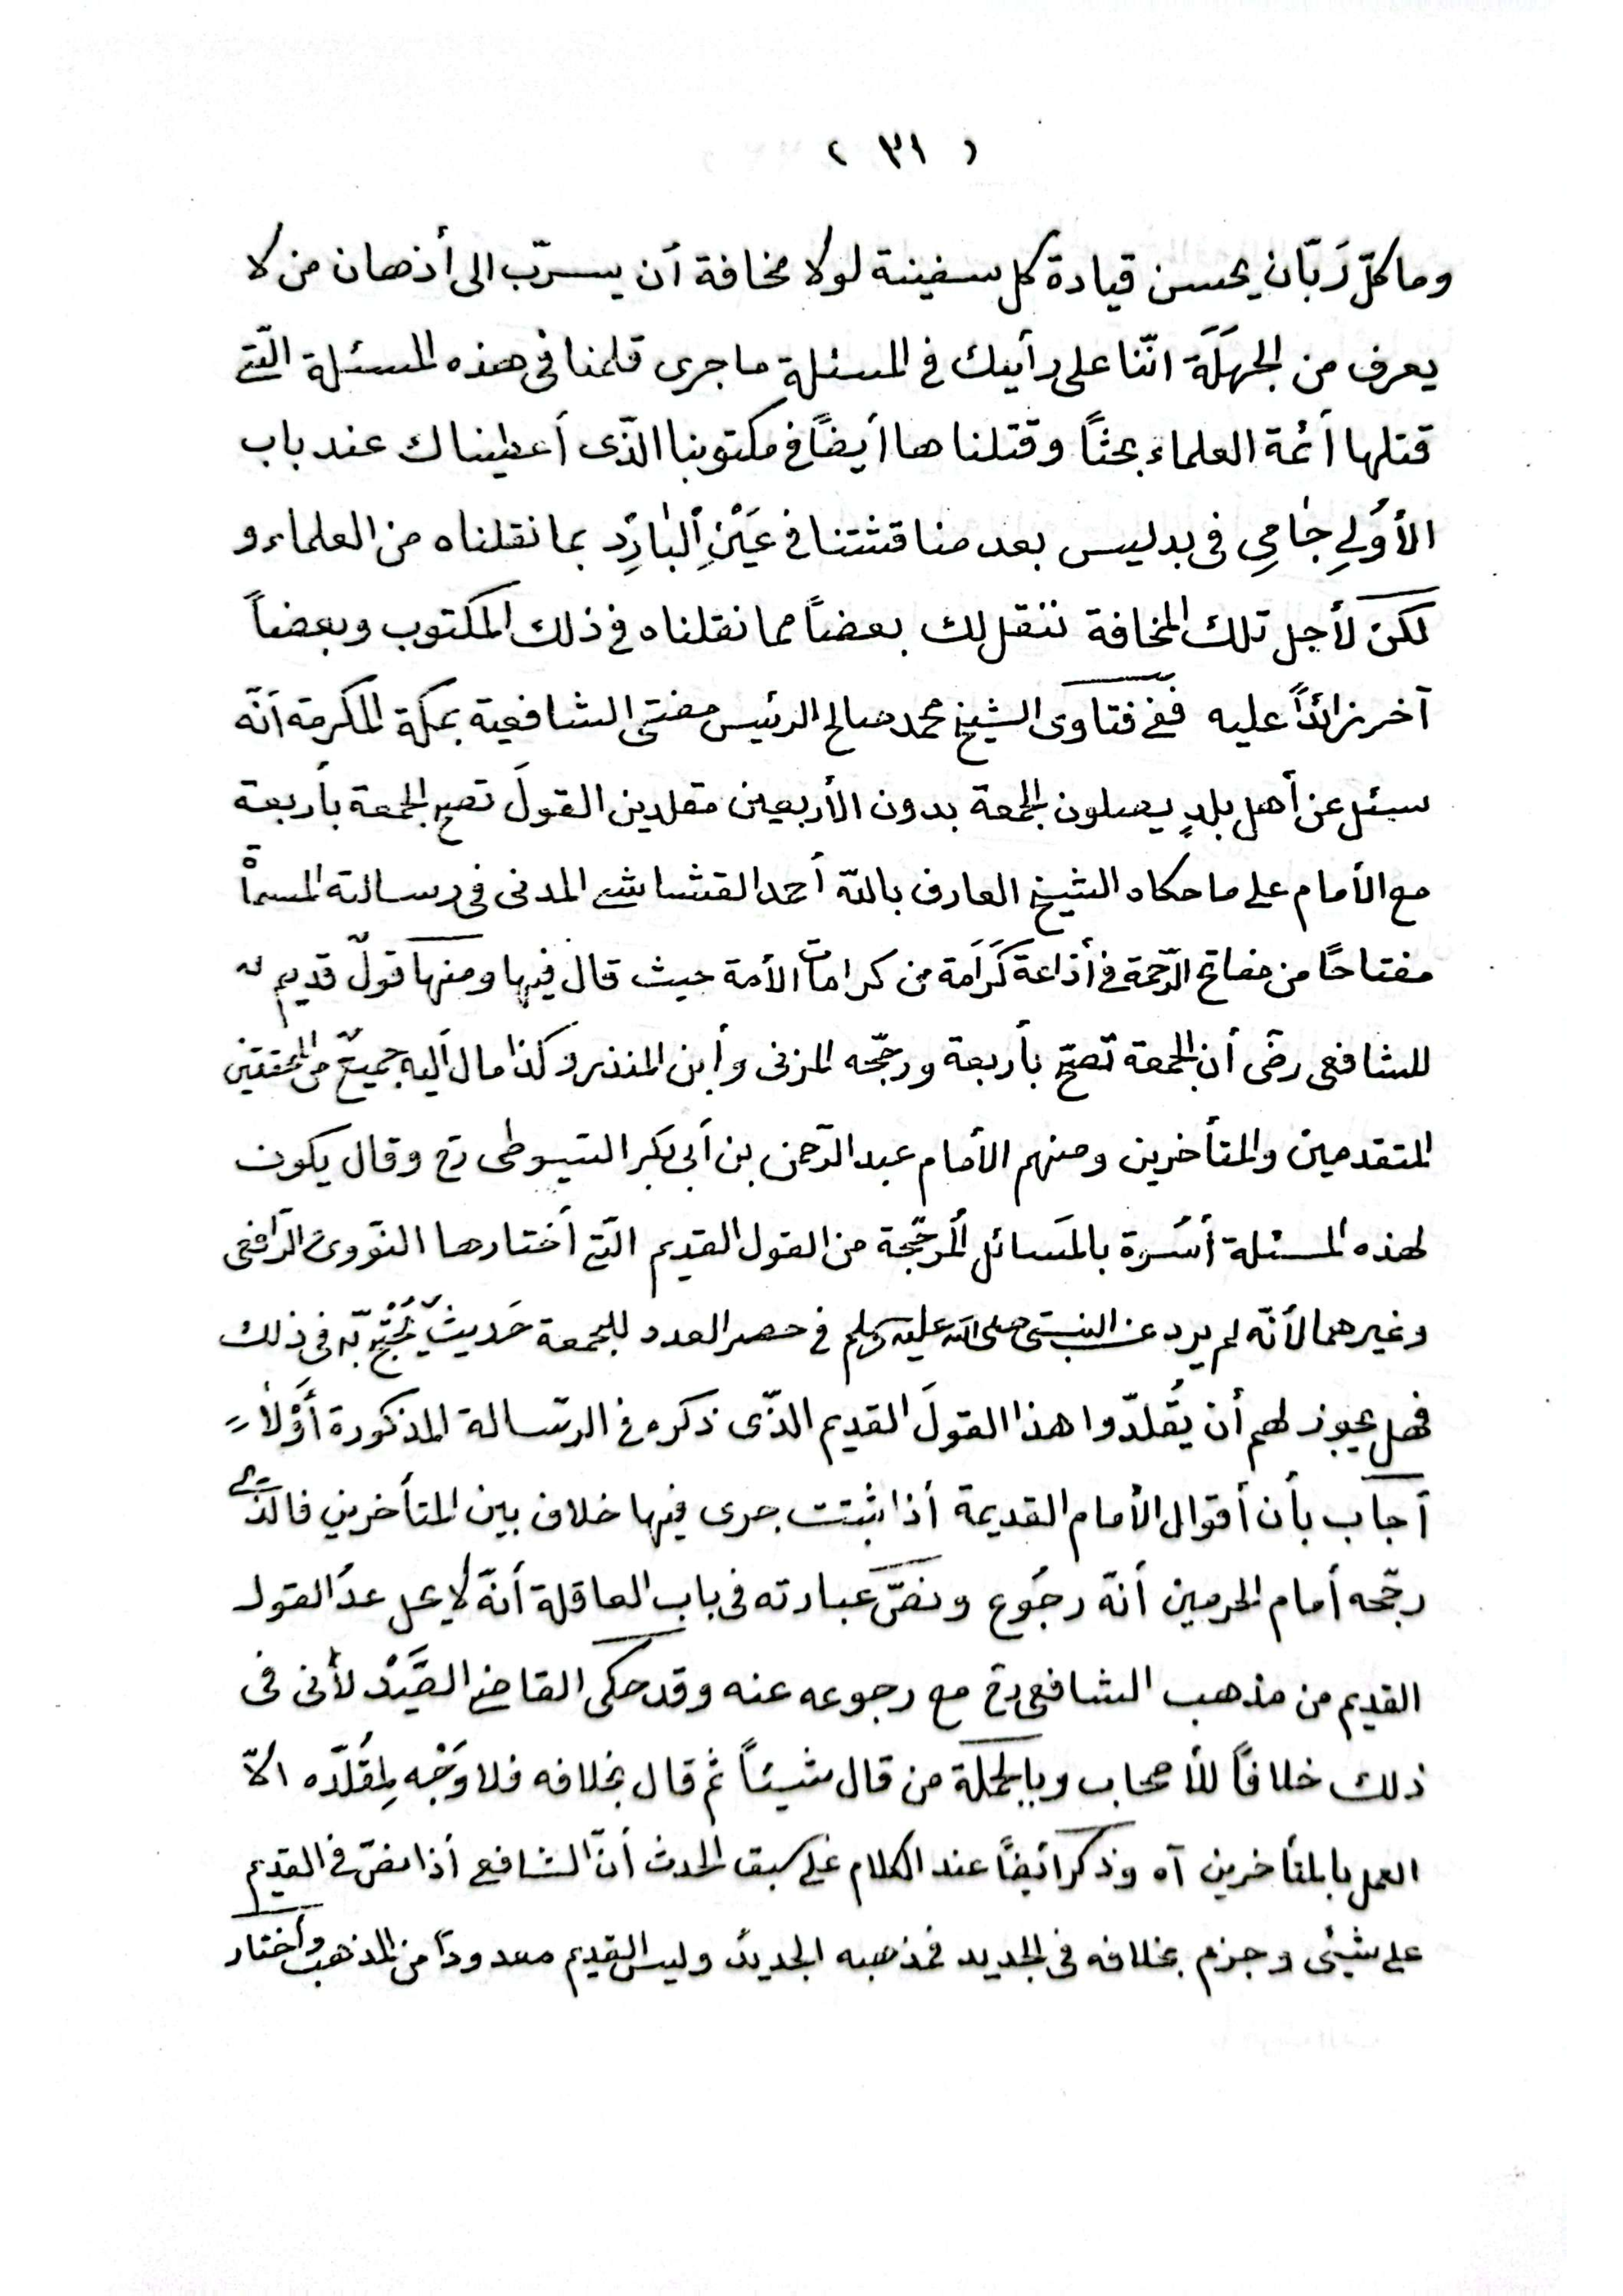 ( ٣١ )
وما كلّ رَبّان يحسن قيادة كل سفينة لولا مخافة أن يسرّب الى أذهان من لا
يعرف من الجهَلَة انّنا على رأيك في المسئلة ما جرى قلمنا في هذه المسئلة الّتي
قتلها أئمة العلماء بحثاً وقتلناها أيضاً في مكتوبنا الذّى أعطيناك عند باب
الأوُلي جٰامِي فى بدليس بعد مناقشتنا في عَيْنِ اْلبٰارِد بما نقلناه من العلماء و
لكن لأجل تلك المخافة ننقل لك بعضاً مما نقلناه في ذلك المكتوب وبعضاً
آخر زائداً عليه ففي فتاوى الشيخ محمد صالح الرئيس مفتى الشافعية بمكة المكرمة أنّه
سئل عن أهل بلدٍ يصلون الجمعة بدون الأربعين مقلدين القولَ تصح الجمعة بأربعة
مع الأمام على ما حكاه الشيخ العارف بالله أحمد القشاشي المدنى فى رسالته المسماْة
مفتاحًا من مفاتح الرّحمة في أذاعة كَرَامَة من كرامات الأمة حيث قال فيها ومنها قولٌ قديم
للشافعى رضى أن الجمعة تصحّ بأربعة ورجّحه المزنى وأبن المنذر وكذا مال أليه جميعٌ من المحققين
المتقدمين والمتأخرين ومنهم الأمام عبد الرّحمن بن أبى بكر السّيوطى رح وقال يكون
لهذه المسئلة أسْرة بالمَسائل المُرجّحة من القول القديم الّتي أختارها النّووى الرّافعى
وغيرهما لأنّه لم يرد عن النبىّ صلى الله عليه وسلم في حصر العدد للجمعة حَديثٌ يُحْتجّ به فى ذلك
فهل يجوز لهم أن يقُلدّوا هذا القولَ القديم الذّى ذكره في الرسّالة المذكورة أَوْلاً
أجاب بأن أقوال الأمام القديمة أذا ثبتت جرى فيها خلاف بين المتأخرين فالذّي
رجّحه أمام الحرمين أنّه رجُوع ونصّ عبارته فى باب العاقلة أنّه لا يحل عدُ القول
القديم من مذهب الشافعى رح مع رجوعه عنه وقد حكى القاضي الصَّيْد لأنى فى
ذلك خلافاً للأصحاب وبالجملة من قال شيئاً ثم قال بخلافه فلا وَجْه لِمقُلدّه الاّ
العمل بابلتأخرين آه وذكر ائيضاً عند الكلام على سبق الحدث أنّ الشافعي أذا نصّ في القديم
على شيئى وجزم بخلافه فى الجديد فمذهبه الجديد وليس القديم معدوداً من المذهب وأختار